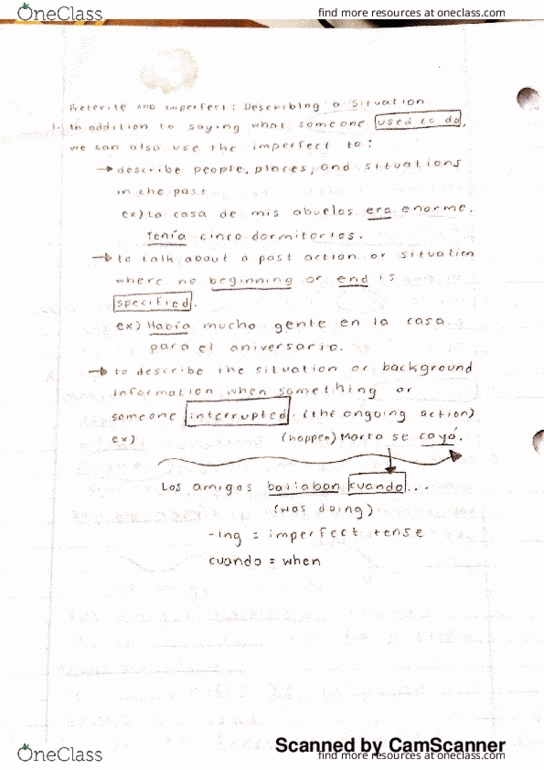 OneClass
find more resources at oneclass.com
Preterite AND Imperfect: Describing a Situation
1. In addition to saying what someone used to do,
we can also use the imperfect to:
→ describe people, places, and situations
in the past
ex) La casa de mis abuelos era enorme.
Tenía cinco dormitorios.
→ to talk about a past action or situation
where no beginning or end is
specified.
ex) Había mucho gente en la casa
para el aniversario.
→ to describe the situation or background
information when something or
someone interrupted. (the ongoing action)
ex) (happen) Marta se cayó.
Los amigos bailaban cuando...
(was doing)
-ing = imperfect tense
cuando = when
Scanned by CamScanner
OneClass
find more resources at oneclass.com